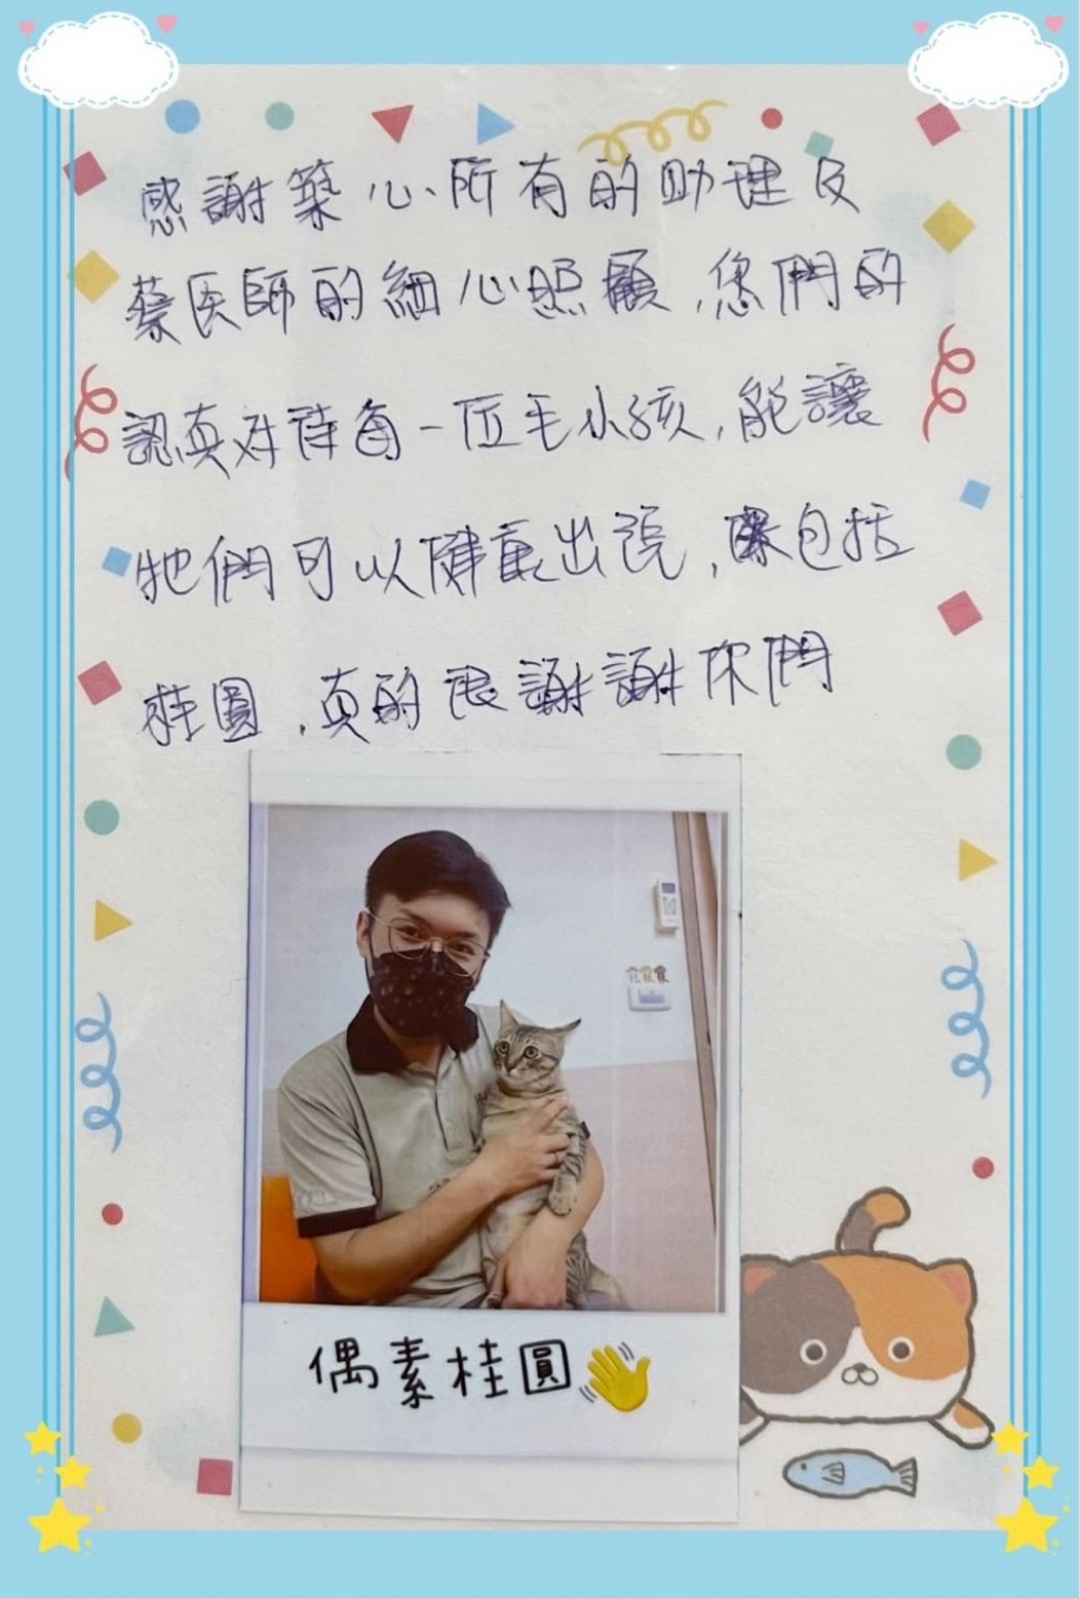 感謝築心所有的助理及
蔡医師的細心照顧,您們的
認真对待每一位毛小孩,能讓
牠們可以健康出院,包括
桂圓,真的很謝謝你們
偶素桂圓